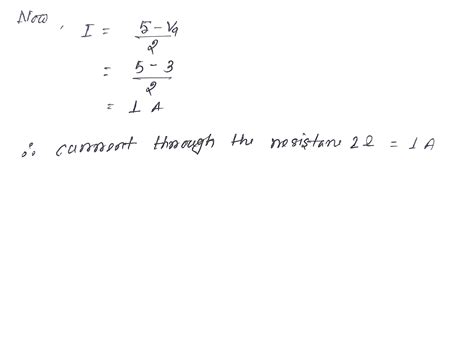 Now, I = 5 - Va / 2
= 5 - 3 / 2
= 1 A
∴ current through the resistan 2Ω = 1 A